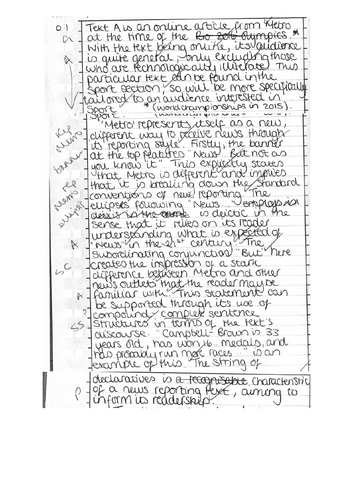 01 Text A is an online article from 'Metro'
at the time of the Rio 2016 Olympics. *
With the text being online, its audience
is quite general, only excluding those
who are technologically illiterate. This
particular text can be found in the
Sport section, so will be more specifically
tailored to an audience interested in
Sport. * (world championships in 2015).
'Metro' represents itself as a new,
different way to receive news through
its reporting style. Firstly, the banner
at the top features "News... But not as
you know it". This explicitly states
that Metro is different and implies
that it is breaking down the standard
conventions of news reporting. The
ellipses following "News..."
is deictic in the
sense that it relies on its reader
understanding what is expected of
'News' in the 21st century. The
subordinating conjunction "But" here
creates the impression of a stark
difference between Metro and other
news outlets that the reader may be
familiar with. This statement can
be supported through its use of
compound/complex sentence
structures in terms of the text's
discourse. "Campbell-Brown is 33
years old, has won 16 medals, and
has probably run more races..." is an
example of this. The string of
declaratives is a recognisable characteristic
of a news reporting text, aiming to
inform its readership.